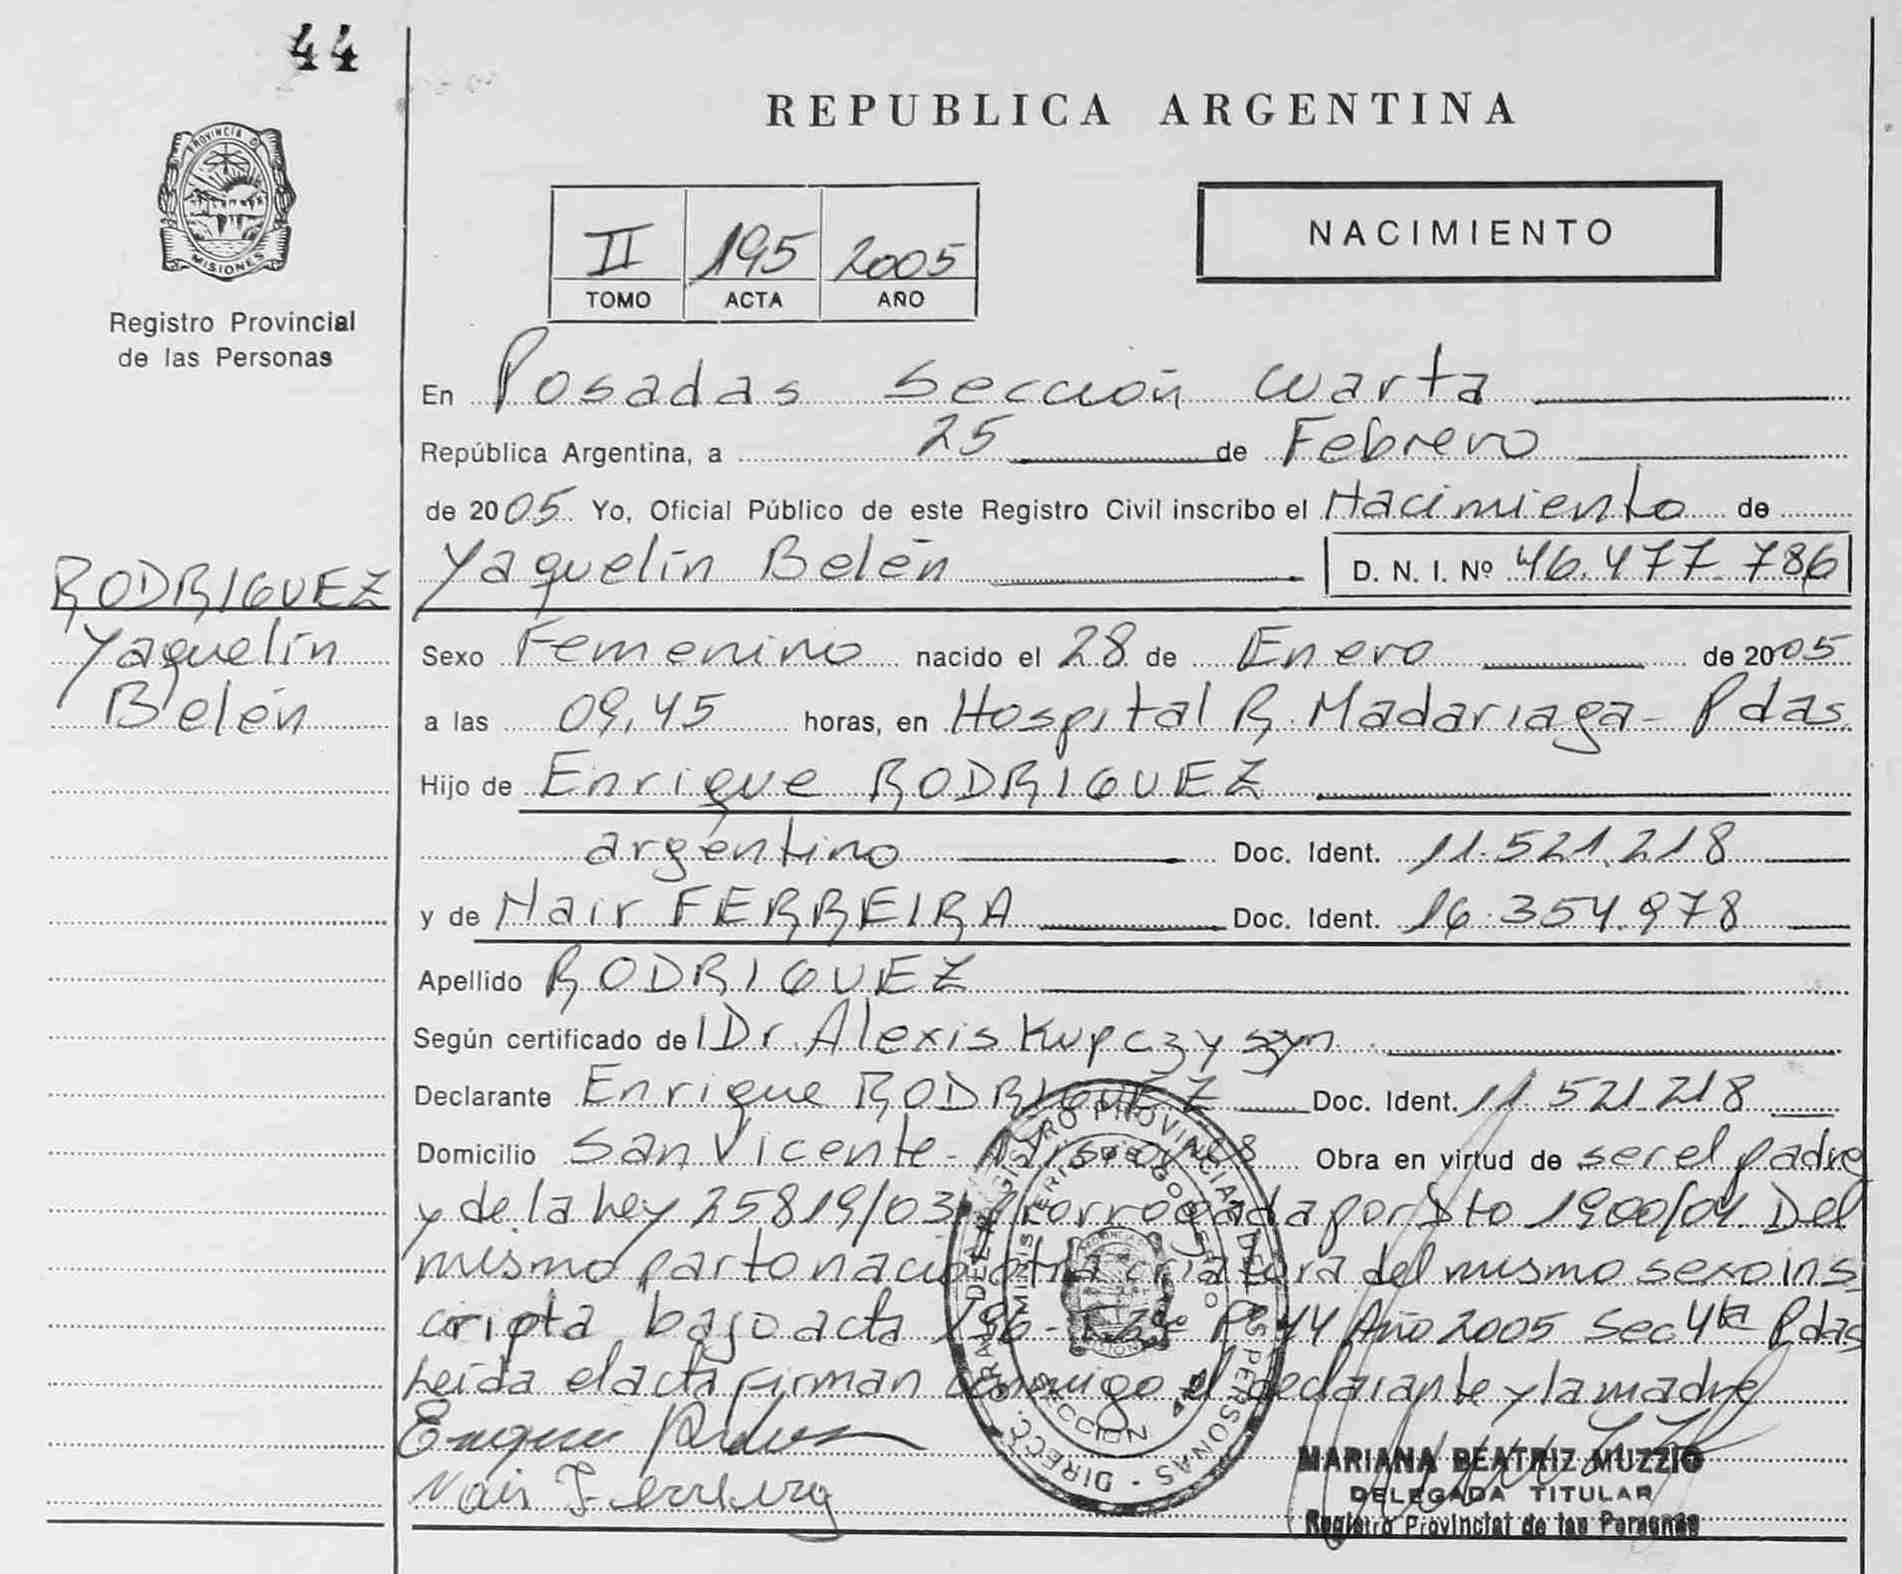 44
REPUBLICA ARGENTINA
PROVINCIA D
MISIONES
Registro Provincial
de las Personas
II 195 2005
TOMO ACTA AÑO
NACIMIENTO
En Posadas Sección Cuarta
República Argentina, a 25 de Febrero
de 2005 Yo, Oficial Público de este Registro Civil inscribo el Nacimiento de
Yaquelín Belén D. N. I. Nº 46.477.786
RODRIGUEZ
Yaquelín
Belén
Sexo Femenino nacido el 28 de Enero de 2005
a las 09,45 horas, en Hospital R. Madariaga - Pdas
Hijo de Enrique RODRIGUEZ
argentino Doc. Ident. 11.521.218
y de Nair FERREIRA Doc. Ident. 16.354.978
Apellido RODRIGUEZ
Según certificado de Dr. Alexis Kupczyszyn
Declarante Enrique RODRIGUEZ Doc. Ident. 11.521.218
Domicilio San Vicente - Misiones Obra en virtud de ser el padre
y de la Ley 25819/03 Prorrogada por Dto 1900/04 Del
mismo parto nació otra criatura del mismo sexo ins
cripta bajo acta 196 - Año 2005 Sec 4ta Pdas
Leída el acta firman conmigo el declarante y la madre
Nair Ferreira
DIRECC. GRAL. DEL REGISTRO PROVINCIAL DE LAS PERSONAS
MINISTERIO DE GOBIERNO
SECCION 4ta
MARIANA BEATRIZ MUZZIO
DELEGADA TITULAR
Registro Provincial de las Personas